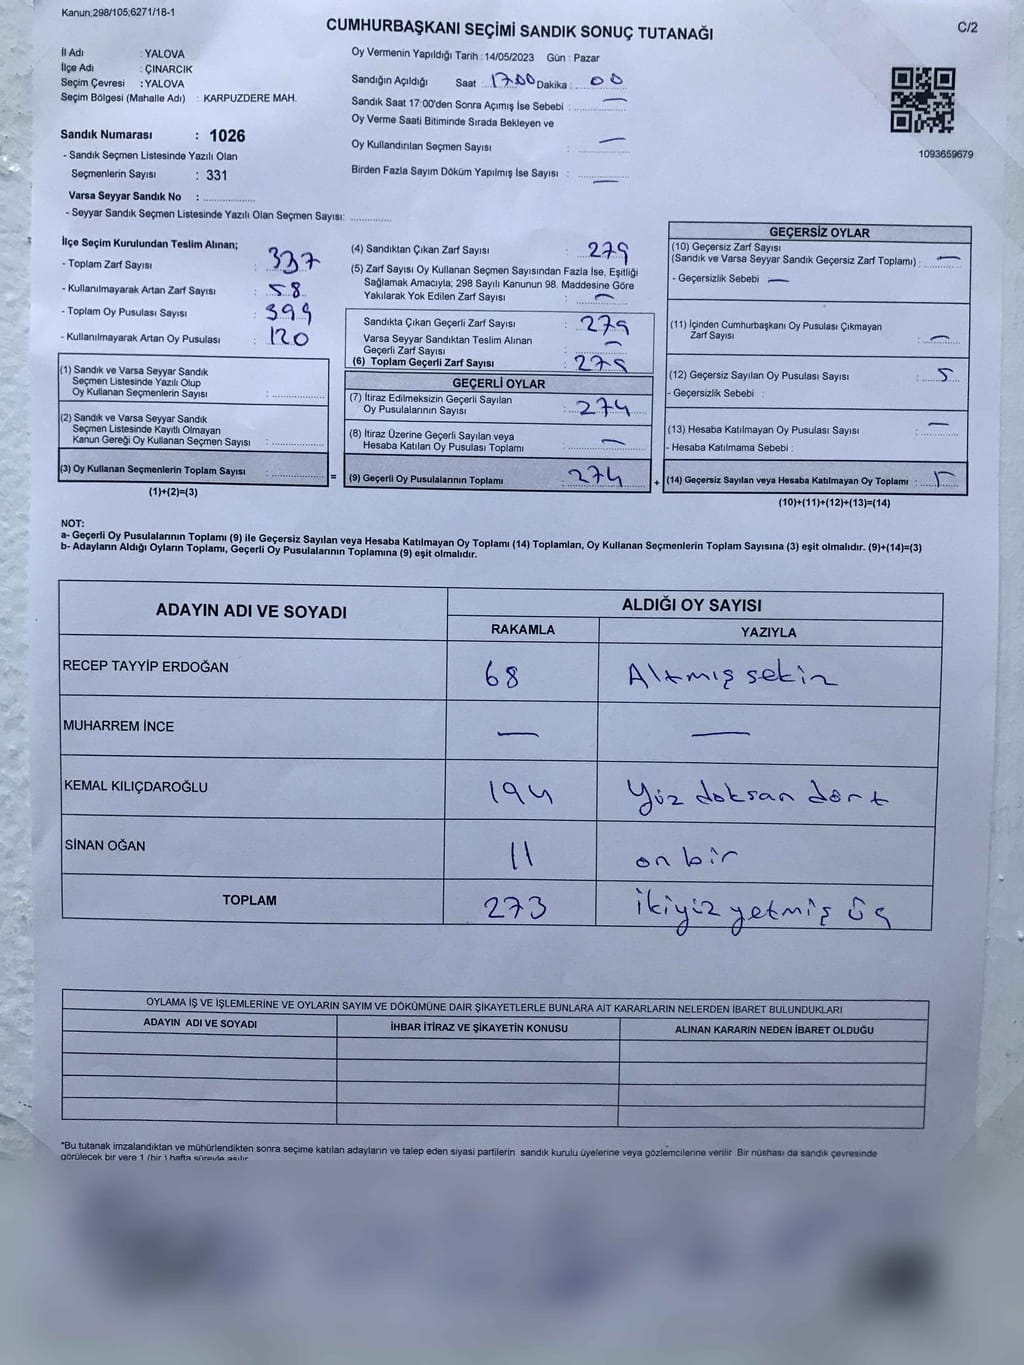 Kanun;298/105;6271/18-1
CUMHURBAŞKANI SEÇİMİ SANDIK SONUÇ TUTANAĞI
C/2
İl Adı : YALOVA
İlçe Adı : ÇINARCIK
Seçim Çevresi : YALOVA
Seçim Bölgesi (Mahalle Adı) : KARPUZDERE MAH.
Sandık Numarası : 1026
- Sandık Seçmen Listesinde Yazılı Olan
Seçmenlerin Sayısı : 331
Varsa Seyyar Sandık No : ................
- Seyyar Sandık Seçmen Listesinde Yazılı Olan Seçmen Sayısı: ............
Oy Vermenin Yapıldığı Tarih :14/05/2023 Gün : Pazar
Sandığın Açıldığı Saat : 17:00 Dakika : 00
Sandık Saat 17:00'den Sonra Açımış İse Sebebi : —
Oy Verme Saati Bitiminde Sırada Bekleyen ve
Oy Kullandırılan Seçmen Sayısı : —
Birden Fazla Sayım Döküm Yapılmış İse Sayısı : —
1093659679
İlçe Seçim Kurulundan Teslim Alınan;
- Toplam Zarf Sayısı : 337
- Kullanılmayarak Artan Zarf Sayısı : 58
- Toplam Oy Pusulası Sayısı : 399
- Kullanılmayarak Artan Oy Pusulası : 120
(1) Sandık ve Varsa Seyyar Sandık
Seçmen Listesinde Yazılı Olup
Oy Kullanan Seçmenlerin Sayısı : ................
(2) Sandık ve Varsa Seyyar Sandık
Seçmen Listesinde Kayıtlı Olmayan
Kanun Gereği Oy Kullanan Seçmen Sayısı : ................
(3) Oy Kullanan Seçmenlerin Toplam Sayısı : ................ =
(1)+(2)=(3)
(4) Sandıktan Çıkan Zarf Sayısı : 279
(5) Zarf Sayısı Oy Kullanan Seçmen Sayısından Fazla İse, Eşitliği
Sağlamak Amacıyla; 298 Sayılı Kanunun 98. Maddesine Göre
Yakılarak Yok Edilen Zarf Sayısı : —
Sandıkta Çıkan Geçerli Zarf Sayısı : 279
Varsa Seyyar Sandıktan Teslim Alınan
Geçerli Zarf Sayısı : —
(6) Toplam Geçerli Zarf Sayısı : 279
GEÇERLİ OYLAR
(7) İtiraz Edilmeksizin Geçerli Sayılan
Oy Pusulalarının Sayısı : 274
(8) İtiraz Üzerine Geçerli Sayılan veya
Hesaba Katılan Oy Pusulası Toplamı : —
(9) Geçerli Oy Pusulalarının Toplamı : 274 +
GEÇERSİZ OYLAR
(10) Geçersiz Zarf Sayısı
(Sandık ve Varsa Seyyar Sandık Geçersiz Zarf Toplamı) : —
- Geçersizlik Sebebi : —
(11) İçinden Cumhurbaşkanı Oy Pusulası Çıkmayan
Zarf Sayısı : —
(12) Geçersiz Sayılan Oy Pusulası Sayısı : 5
- Geçersizlik Sebebi :
(13) Hesaba Katılmayan Oy Pusulası Sayısı : —
- Hesaba Katılmama Sebebi :
(14) Geçersiz Sayılan veya Hesaba Katılmayan Oy Toplamı : 5
(10)+(11)+(12)+(13)=(14)
NOT:
a- Geçerli Oy Pusulalarının Toplamı (9) ile Geçersiz Sayılan veya Hesaba Katılmayan Oy Toplamı (14) Toplamları, Oy Kullanan Seçmenlerin Toplam Sayısına (3) eşit olmalıdır. (9)+(14)=(3)
b- Adayların Aldığı Oyların Toplamı, Geçerli Oy Pusulalarının Toplamına (9) eşit olmalıdır.
ADAYIN ADI VE SOYADI ALDIĞI OY SAYISI
RAKAMLA YAZIYLA
RECEP TAYYİP ERDOĞAN 68 Altmış sekiz
MUHARREM İNCE — —
KEMAL KILIÇDAROĞLU 194 Yüz doksan dört
SİNAN OĞAN 11 on bir
TOPLAM 273 ikiyüz yetmiş üç
OYLAMA İŞ VE İŞLEMLERİNE VE OYLARIN SAYIM VE DÖKÜMÜNE DAİR ŞİKAYETLERLE BUNLARA AİT KARARLARIN NELERDEN İBARET BULUNDUKLARI
ADAYIN ADI VE SOYADI İHBAR İTİRAZ VE ŞİKAYETİN KONUSU ALINAN KARARIN NEDEN İBARET OLDUĞU
*Bu tutanak imzalandıktan ve mühürlendikten sonra seçime katılan adayların ve talep eden siyasi partilerin sandık kurulu üyelerine veya gözlemcilerine verilir Bir nüshası da sandık çevresinde
görülecek bir yere 1 (bir ) hafta süreyle asılır